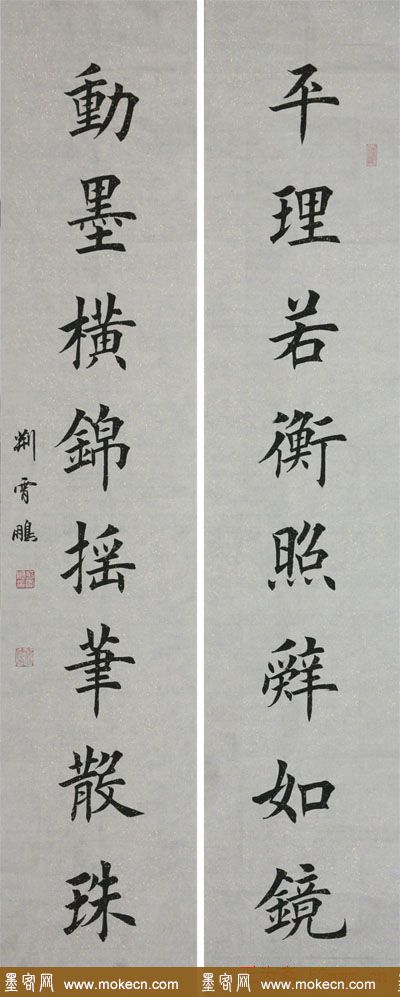 平理若衡照辤如鏡
動墨橫錦揺筆散珠
荆霄鵬
墨客网 www.mokecn.com 墨客网 www.mokecn.com